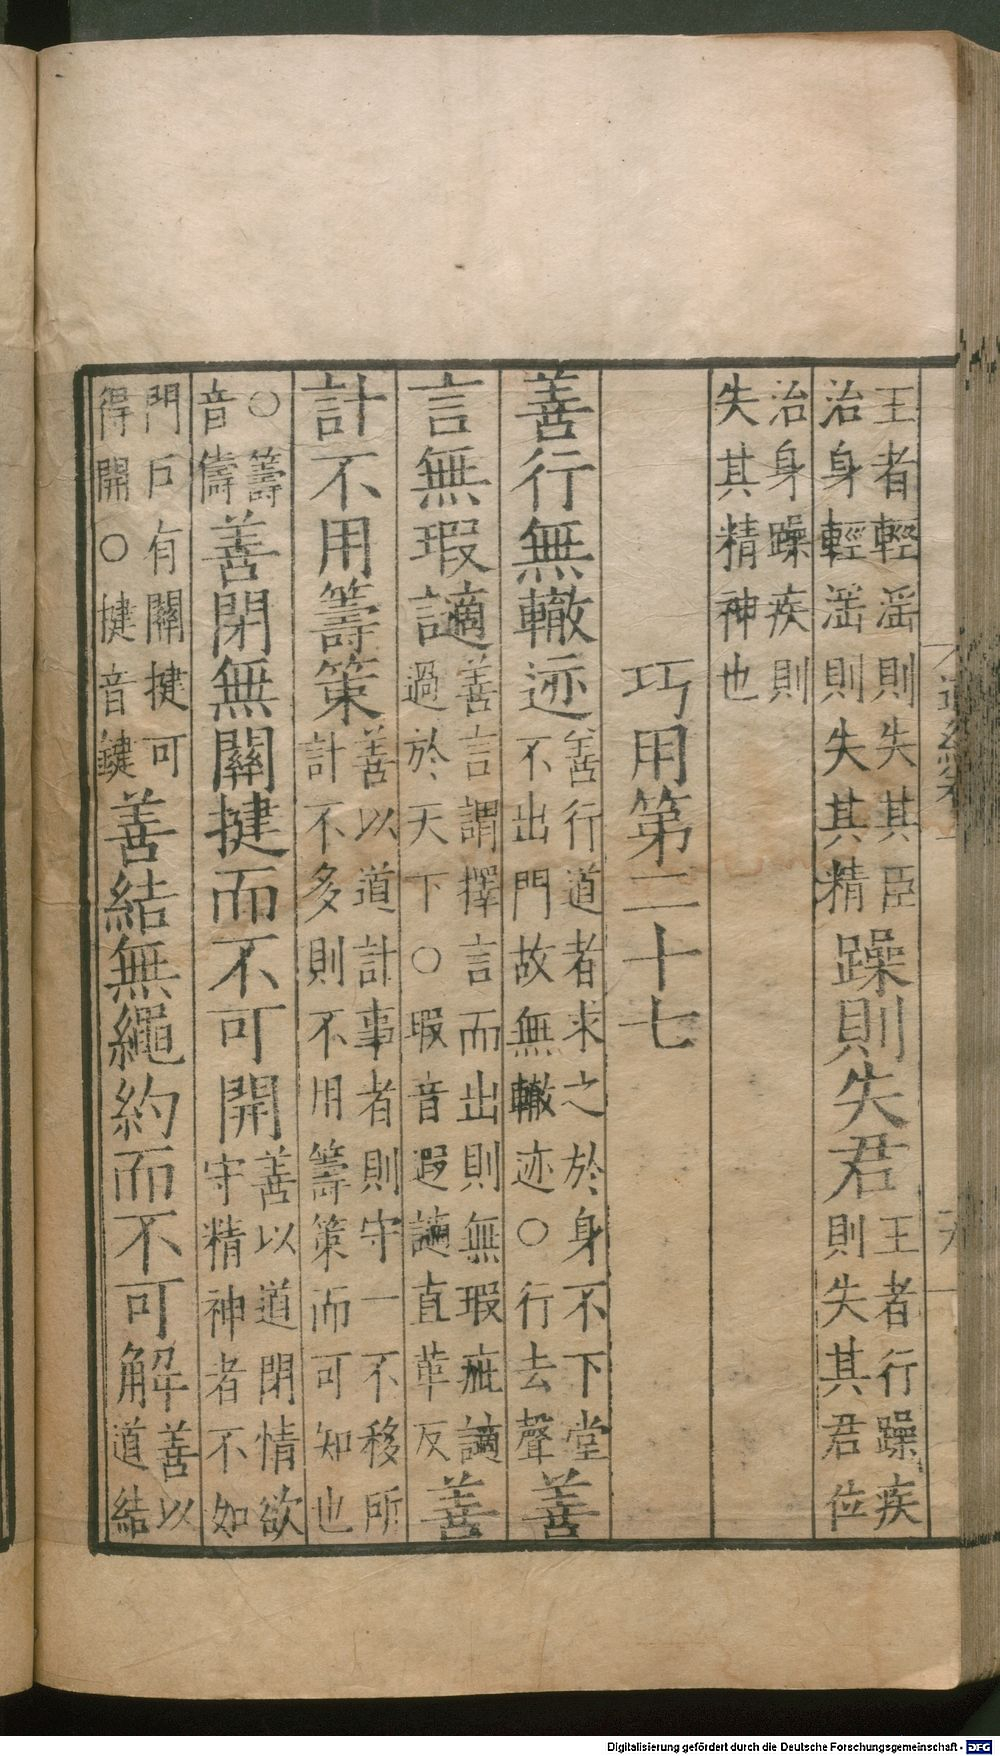 王者輕滛則失其臣
治身輕滛則失其精
躁則失君
王者行躁疾
則失其君位
治身躁疾則
失其精神也
巧用第二十七
善行無轍迹
善行道者求之於身不下堂
不出門故無轍迹○行去聲
善
言無瑕讁
善言謂擇言而出則無瑕疵讁
過於天下○瑕音遐讁直革反
善
計不用籌策
善以道計事者則守一不移所
計不多則不用籌策而可知也
○籌
音儔
善閉無關揵而不可開
善以道閉情欲
守精神者不如
門戶有關揵可
得開○揵音鍵
善結無繩約而不可解
善以
道結
Digitalisierung gefördert durch die Deutsche Forschungsgemeinschaft - DFG